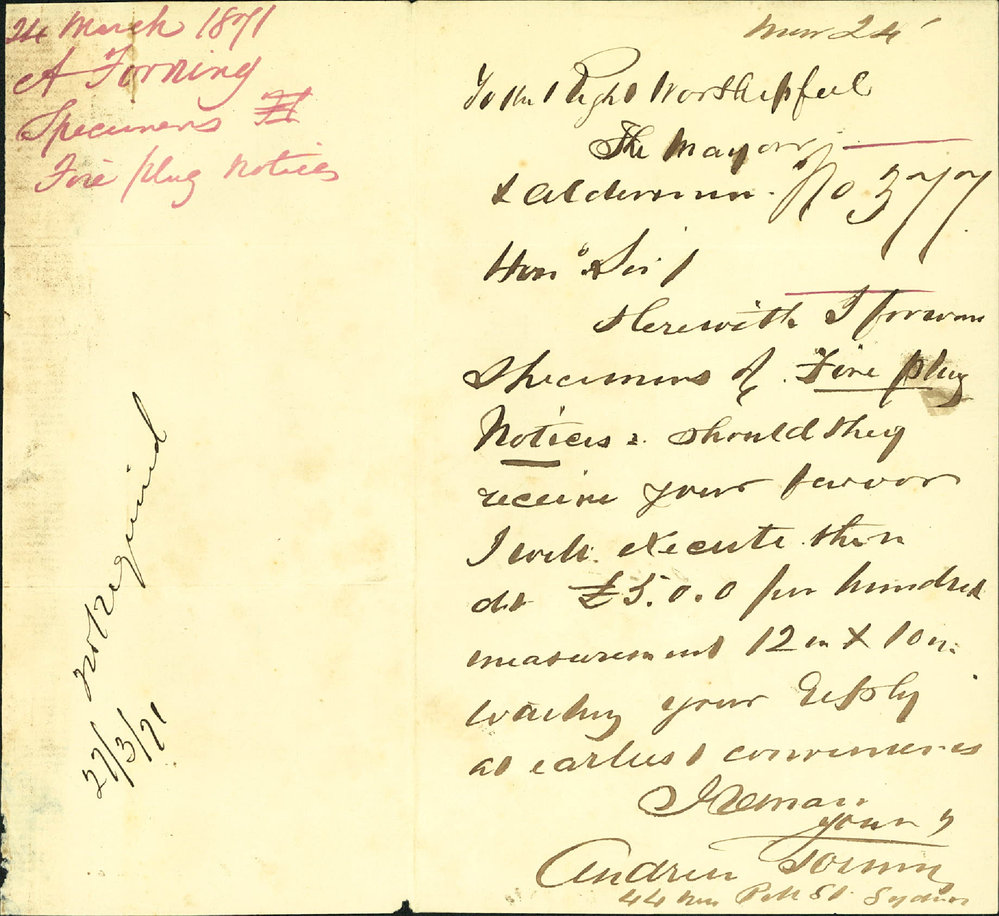 24 March 1871
A Torning
Specimens
Fire plug Notices
Not Required
27/3/71
Mar 24
To the Right Worshipful
The Mayor
& Aldermen. No 377
Hon.d Sir/
Herewith I forward
Specimens of Fire plug
Notices: should they
receive your favour
I will execute them
at £5.0.0 per hundred
measurement 12 in X 10 in.
waiting your Reply
at earliest convenience
I Remain
yours
Andrew Torning
44 Pitt St Sydney